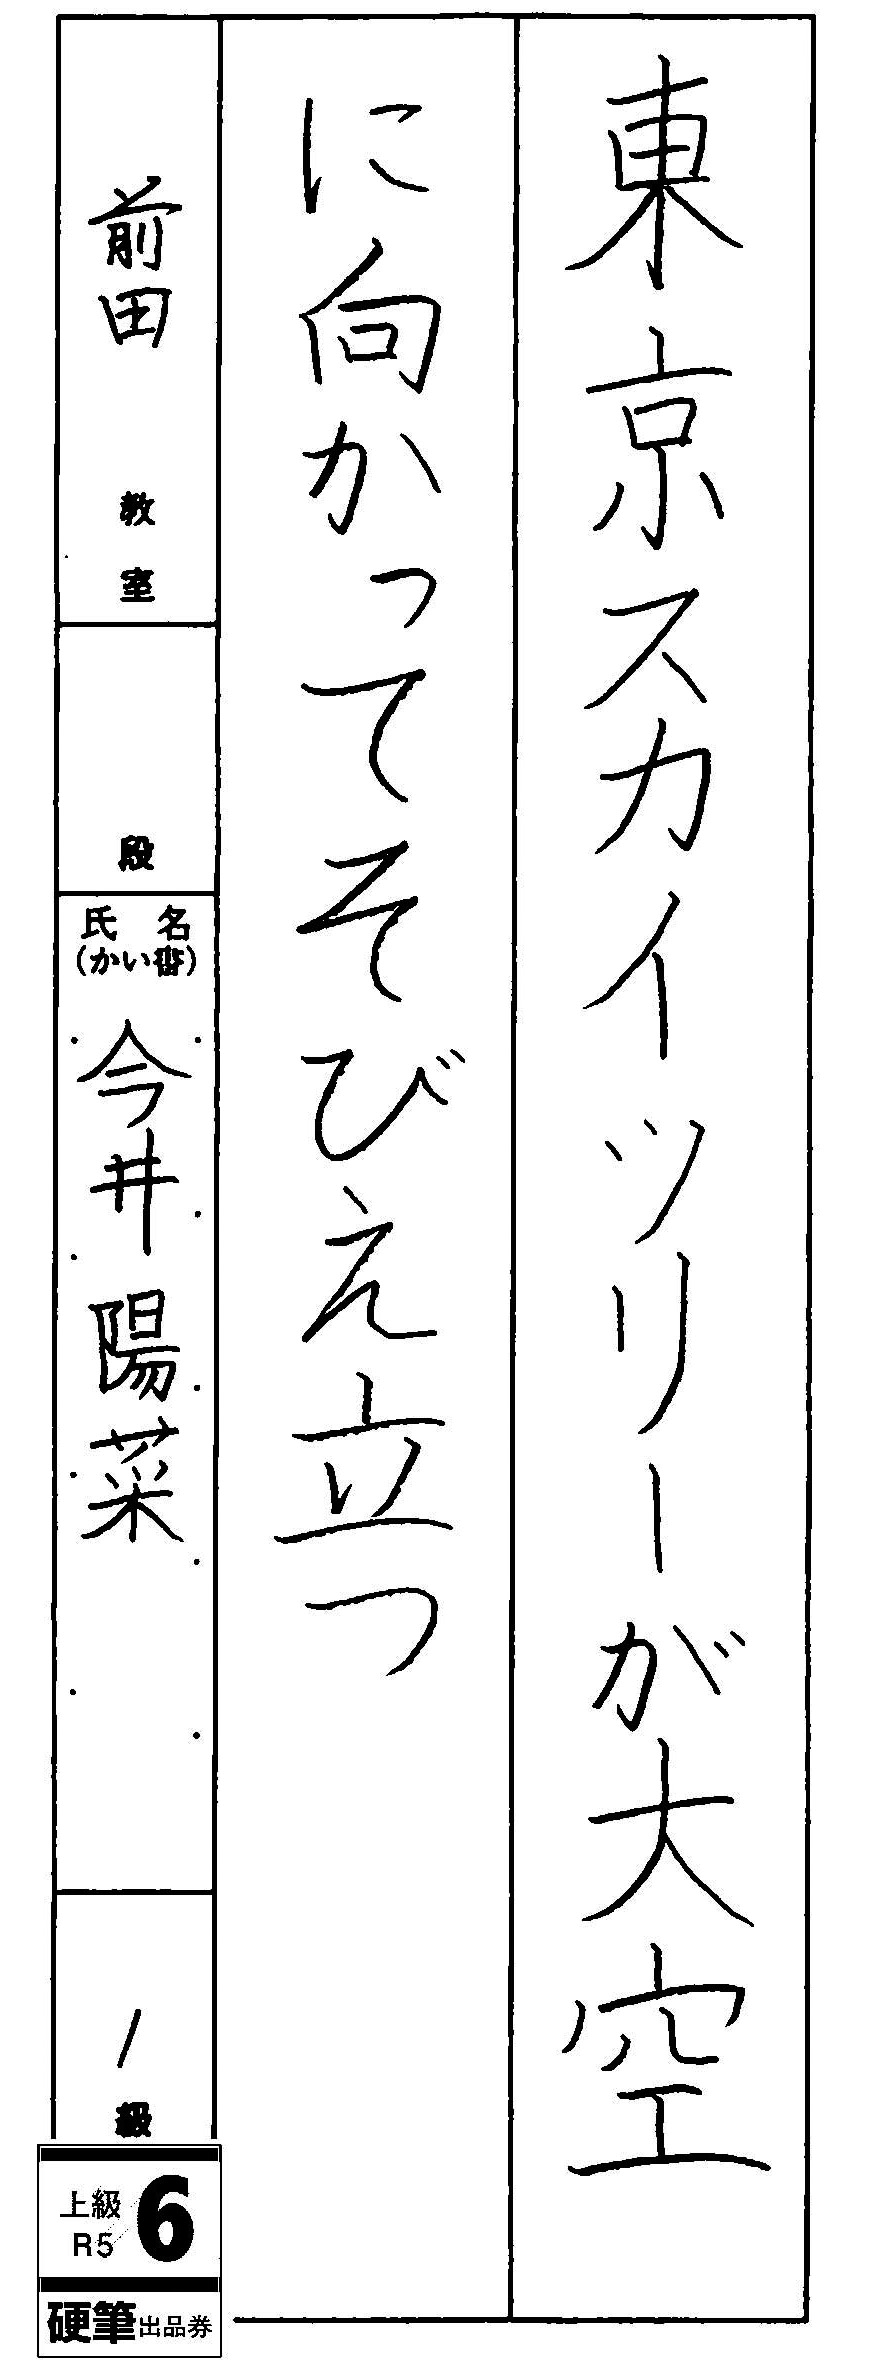 東京スカイツリーが大空
に向かってそびえ立つ
前田 教室
段
氏名
(かい書)
今井陽菜
1級
上級
R5
6
硬筆出品券